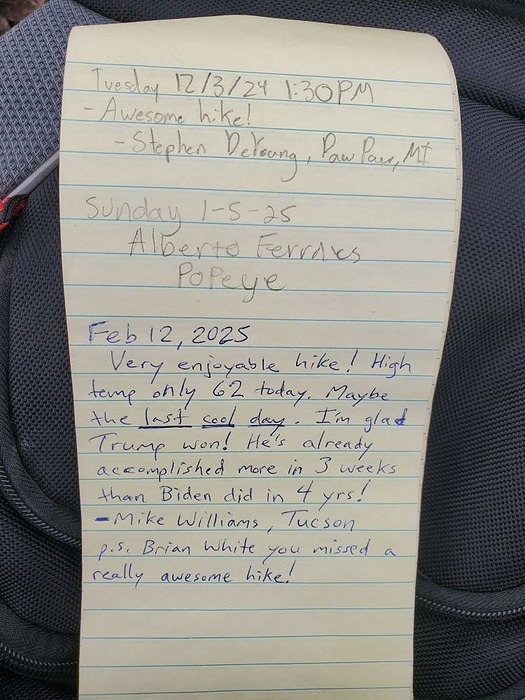 Tuesday 12/3/24 1:30PM
- Awesome hike!
- Stephen DeYoung, Paw Paw, MI
Sunday 1-5-25
Alberto
Popeye
Feb 12, 2025
Very enjoyable hike! High
temp only 62 today. Maybe
the last cool day. I'm glad
Trump won! He's already
accomplished more in 3 weeks
than Biden did in 4 yrs!
- Mike Williams, Tucson
p.s. Brian White you missed a
really awesome hike!